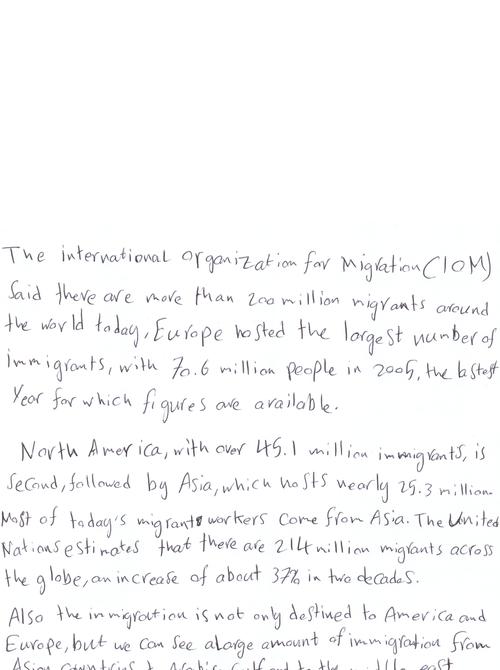 The international Organization for Migration (IOM)
Said there are more than 200 million migrants around
the world today, Europe hosted the largest number of
immigrants, with 70.6 million people in 2005, the lastest
Year for which figures are available.
North America, with over 45.1 million immigrants, is
Second, followed by Asia, which hosts nearly 25.3 million.
Most of today's migrants workers come from Asia. The United
Nations estimates that there are 214 million migrants across
the globe, an increase of about 37% in two decades.
Also the immigration is not only destined to America and
Europe, but we can see a large amount of immigration from
Asian countries t Arabic Gulf and to the middle east